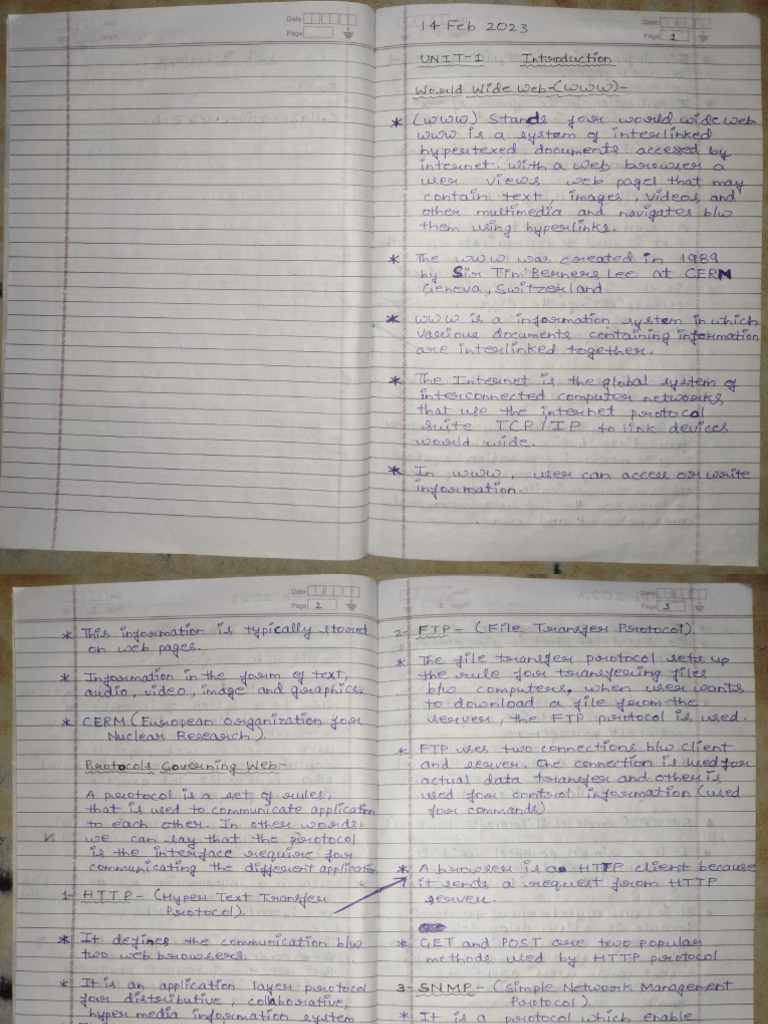 Date
Page
14 Feb 2023
Date
Page 1
UNIT-1 Introduction
World Wide Web-(WWW)-
* (WWW) Stands for world wide web
WWW is a system of interlinked
hypertexed documents accessed by
internet. With a web browser a
user views web pages that may
contain text, images, videos and
other multimedia and navigates b/w
them using hyperlinks.
* The WWW was created in 1989
by Sir Tim Berners Lee at CERN
Geneva, Switzerland
* WWW is a information system in which
various documents containing information
are interlinked together.
* The Internet is the global system of
interconnected computer networks
that use the internet protocol
suite TCP/IP to link devices
world wide.
* In WWW, user can access or write
information.
Date
Page 2
* This information is typically stored
on web pages.
* Information in the form of text,
audio, video, image and graphics.
* CERM (European Organization for
Nuclear Research).
Protocols Governing Web-
A protocol is a set of rules,
that is used to communicate application
to each other. In other words,
we can say that the protocol
is the interface require for
communicating the different application
1- HTTP- (Hyper Text Transfer
Protocol).
* It defines the communication b/w
two web browsers.
* It is an application layer protocol
for distributive, collaborative,
hyper media information system
Date
Page 3
2- FTP- (File Transfer Protocol).
* The file transfer protocol sets up
the rule for transfering files
b/w computers, when user wants
to download a file from the
server, the FTP protocol is used.
* FTP uses two connections b/w client
and server. One connection is used for
actual data transfer and other is
used for control information (used
for commands).
* A browser is a HTTP client because
it sends a request from HTTP
server.
* GET and POST are two popular
methods used by HTTP protocol
3- SNMP- (Simple Network Management
Protocol).
* It is a protocol which enable